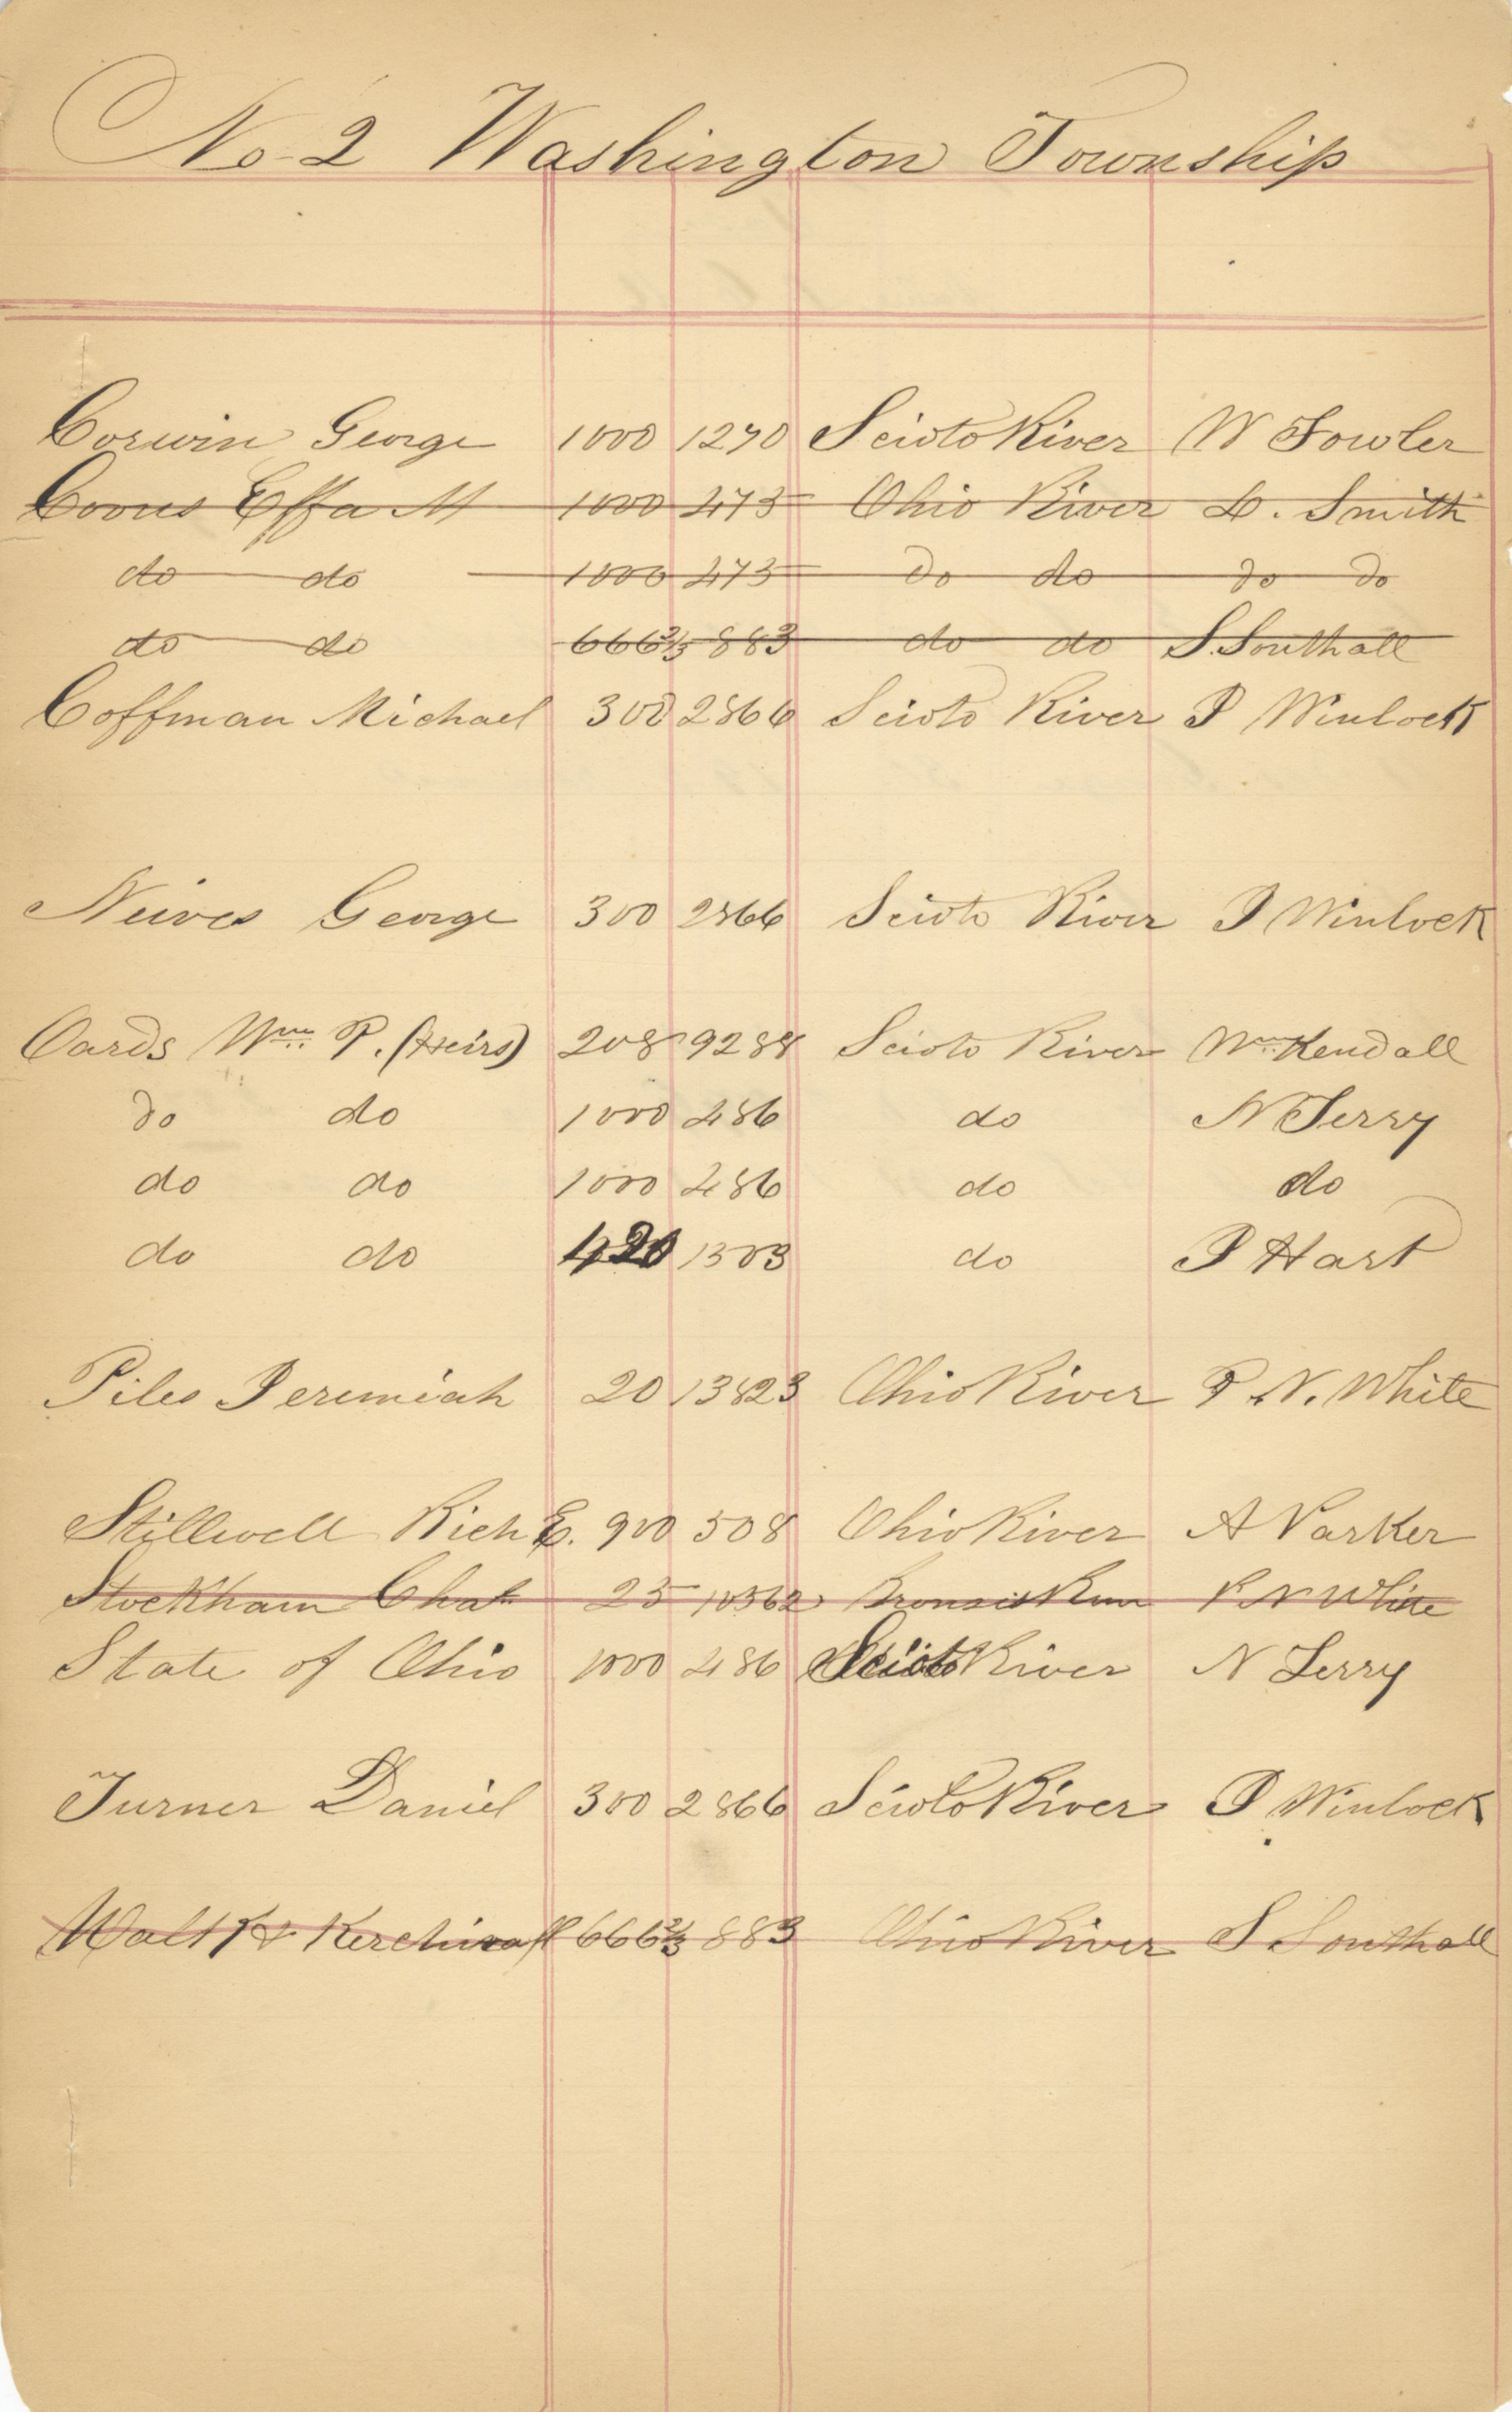 No 2 Washington Township
Corwin George 1000 1290 Scioto River W Fowler
Coous Effa M 1000 475 Ohio River L. Smith
do do 1000 475 do do do do
do do 666 2/3 883 do do S. Southall
Coffman Michael 300 2866 Scioto River J Winlock
Neives George 300 2866 Scioto River J Winlock
Oards Wm P. (Heirs) 208 9288 Scioto River Wm Kendall
do do 1000 486 do N Terry
do do 1000 486 do do
do do 420 1303 do J Hart
Piles Jeremiah 20 13823 Ohio River P. N. White
Stillwell Rich E. 900 508 Ohio River A Parker
Stockham Chas 25 10362 Run P N White
State of Ohio 1000 486 Scioto River N Terry
Turner Daniel 300 2866 Scioto River J Winlock
Walt K & Kerchival 666 2/3 883 Ohio River S Southall